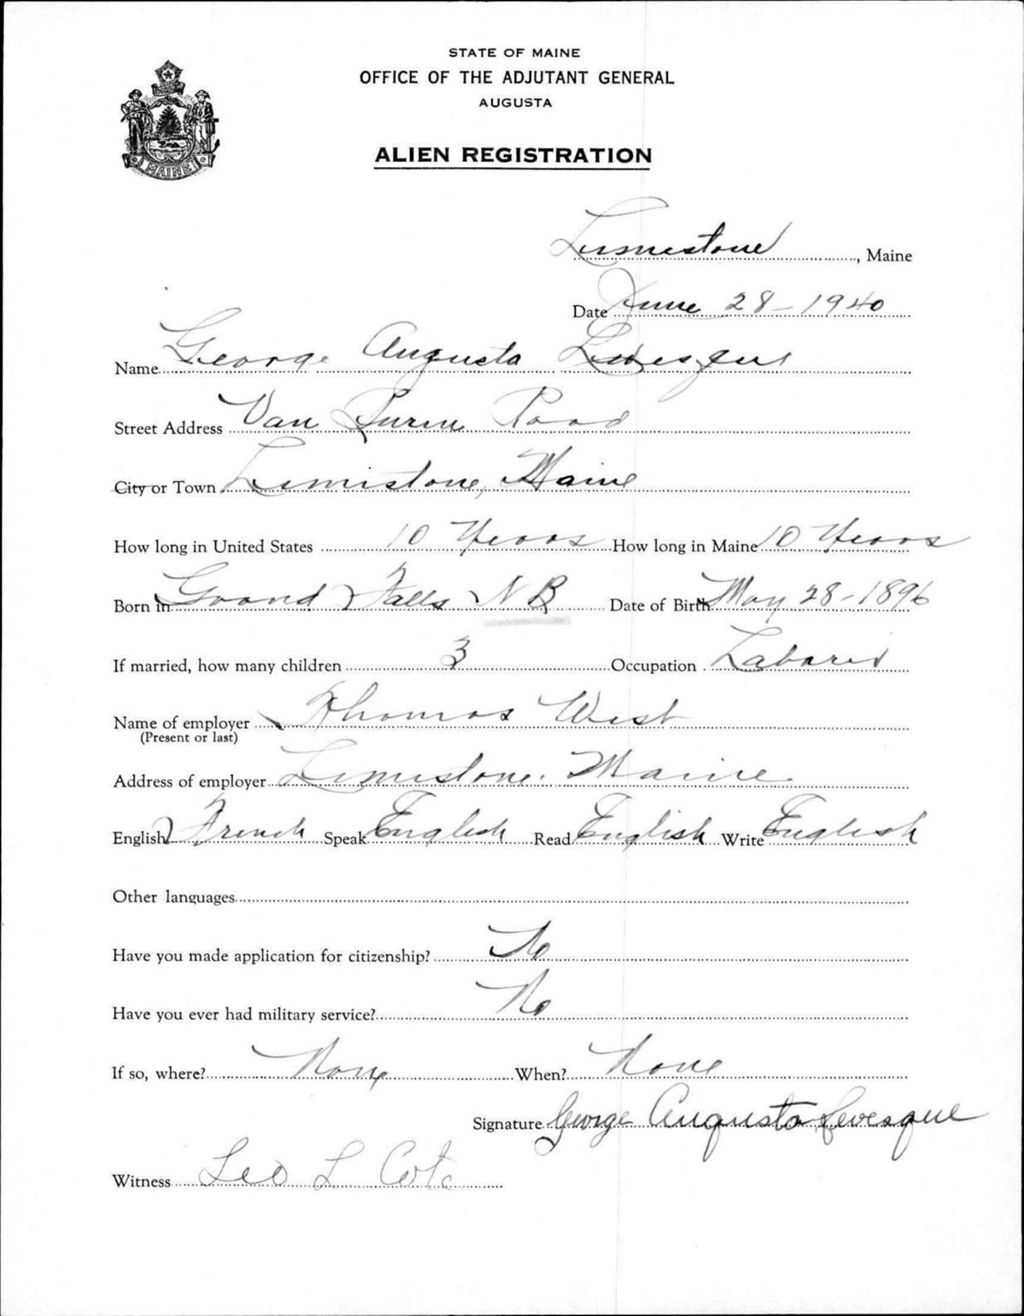 STATE OF MAINE
OFFICE OF THE ADJUTANT GENERAL
AUGUSTA
MAINE
ALIEN REGISTRATION
Limestone, Maine
Date June 28-1940
Name George Augusta Levesque
Street Address Van Buren Road
City or Town Limestone, Maine
How long in United States 10 Years How long in Maine 10 Years
Born in Grand Falls NB Date of Birth May 28-1896
If married, how many children 3 Occupation Laborer
Name of employer Thomas West
(Present or last)
Address of employer Limestone. Maine
English French Speak English Read English Write English
Other languages
Have you made application for citizenship? No
Have you ever had military service? No
If so, where? None When? None
Signature George Augusta Levesque
Witness Leo L Cote